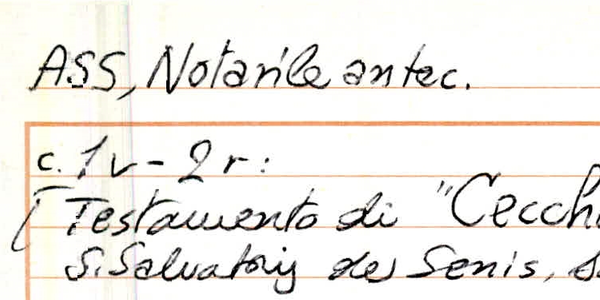 ASS, Notarile antec.
c. 1v - 2r:
[Testamento di "Cecch
S. Salvatoris de Senis,